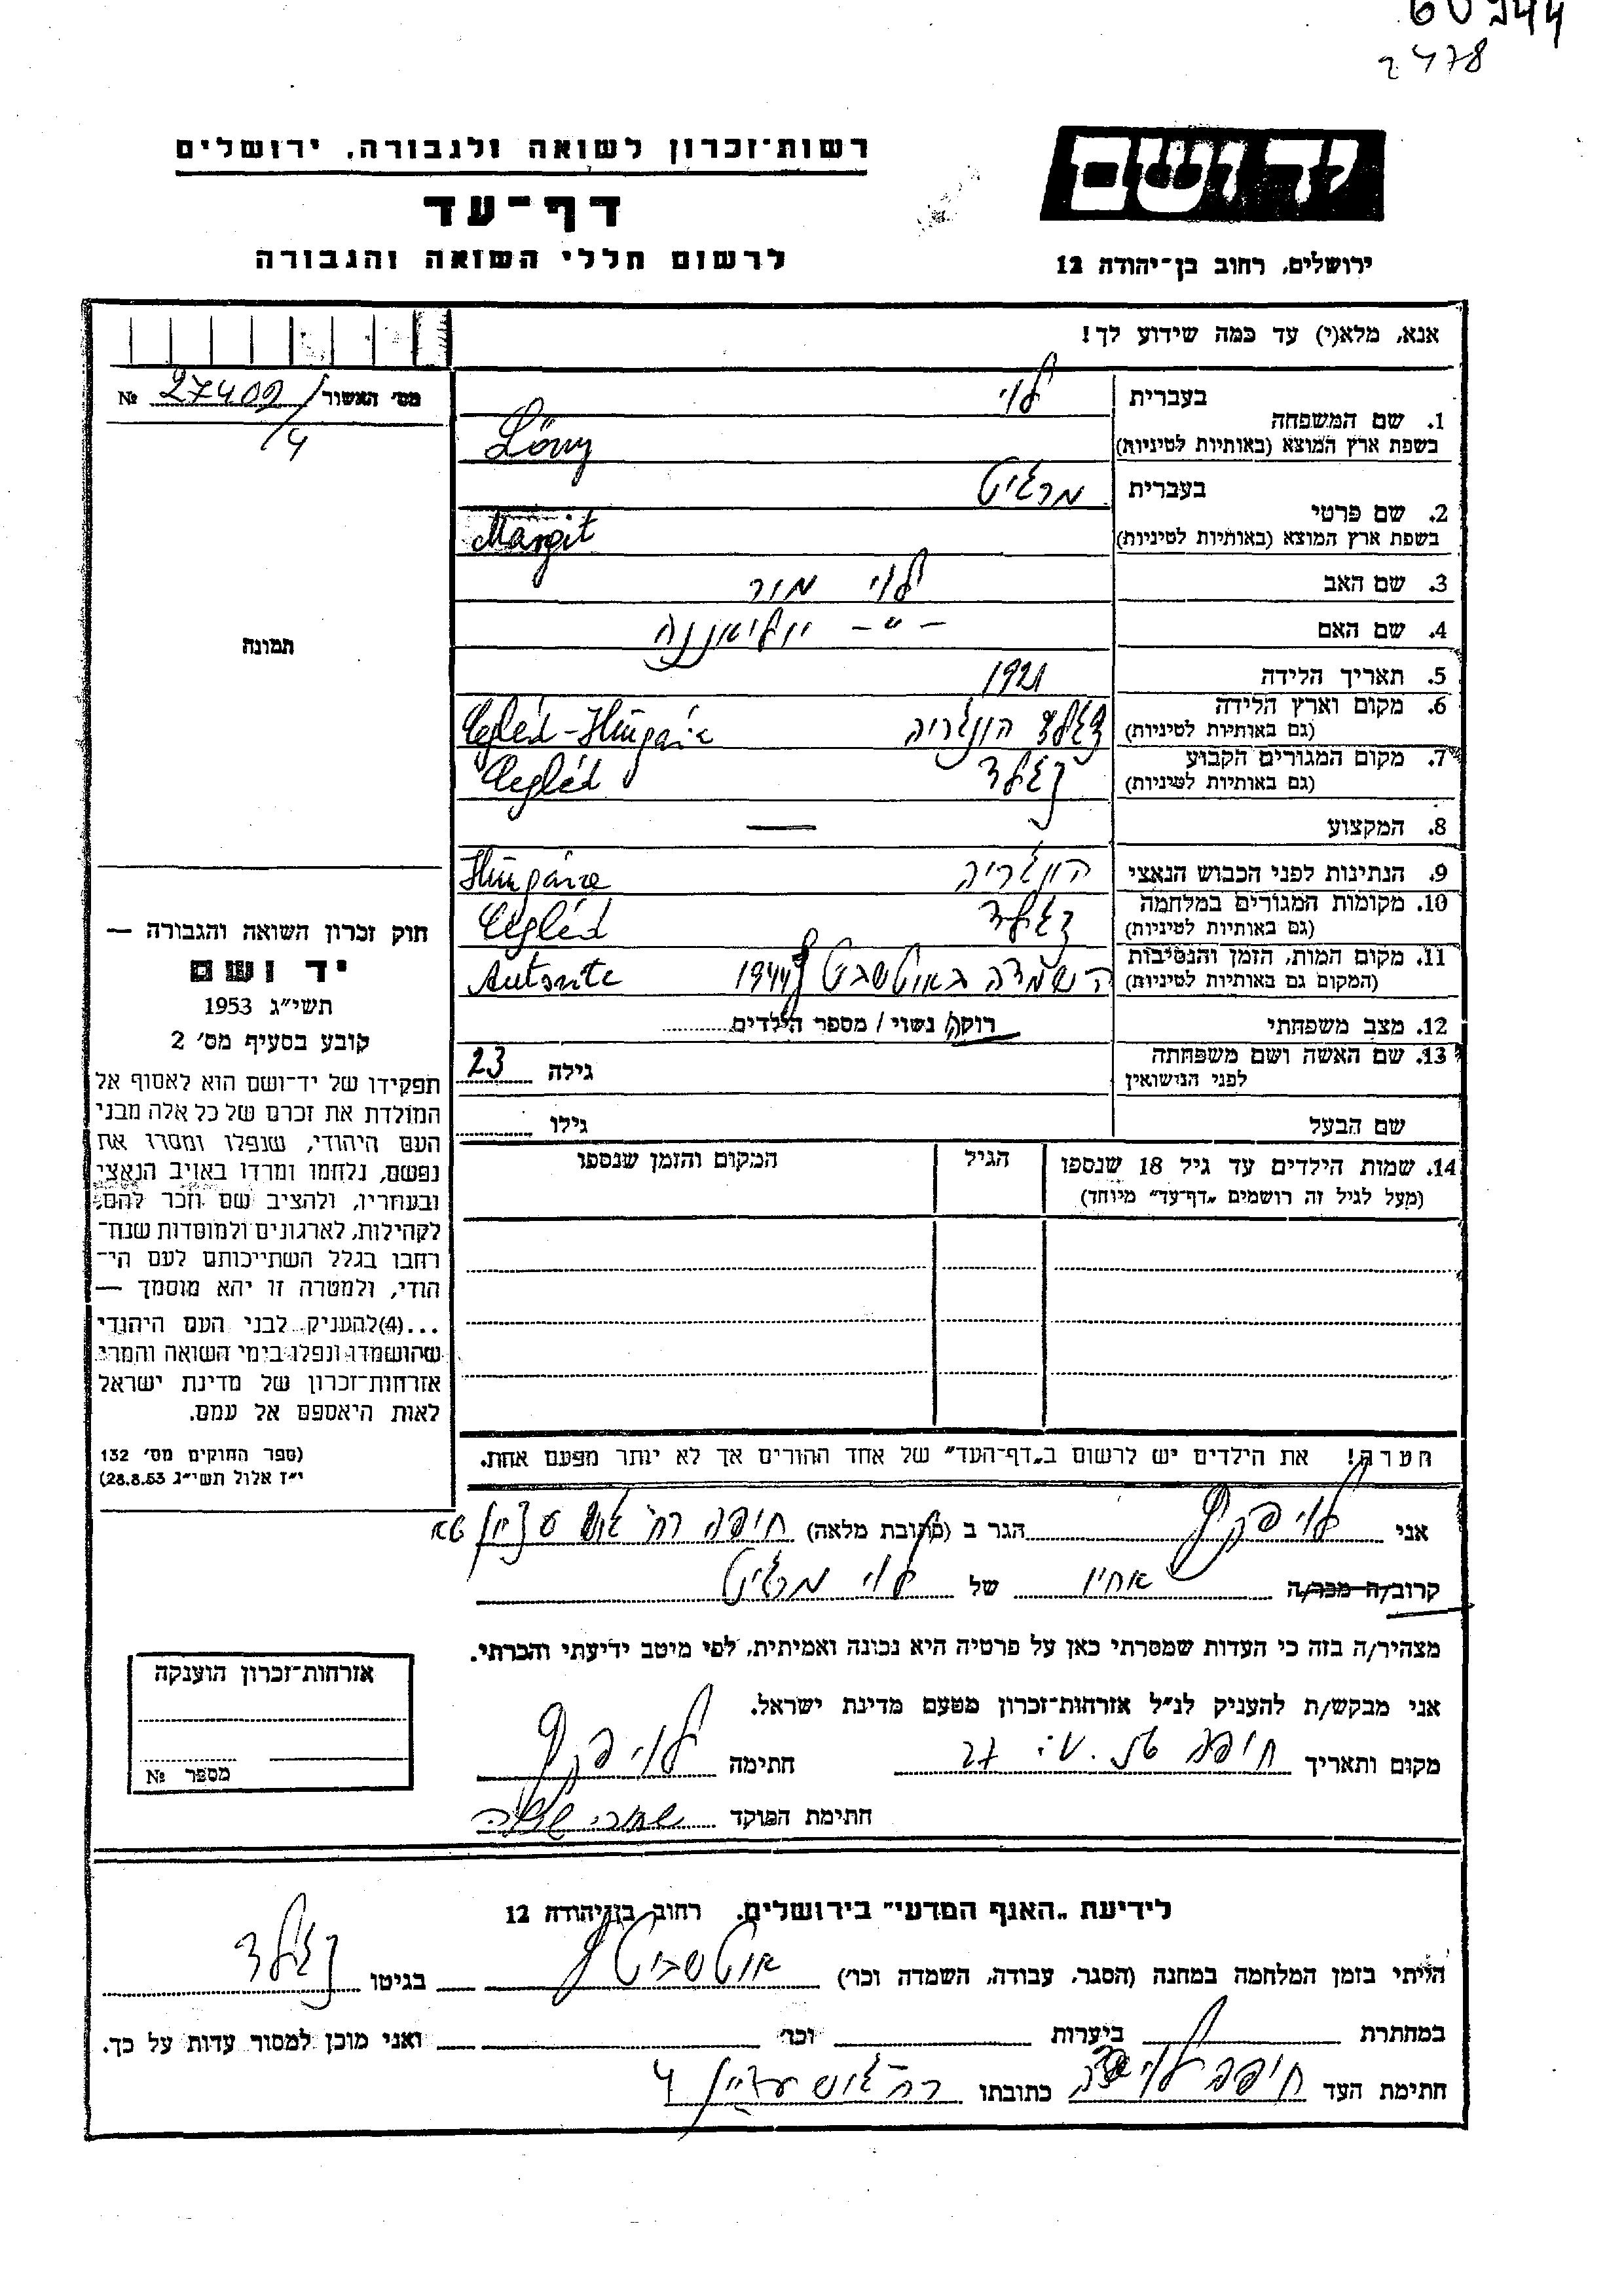 60244
2478
רשות־זכרון לשואה ולגבורה, ירושלים
דף־עד
לרשום חללי השואה והגבורה
יד ושם
ירושלים, רחוב בן־יהודה 12
אנא, מלא(י) עד כמה שידוע לך!
מס׳ האשור 27402/4 №
תמונה
חוק זכרון השואה והגבורה —
יד ושם
תשי״ג 1953
קובע בסעיף מס׳ 2
תפקידו של יד־ושם הוא לאסוף אל
המולדת את זכרם של כל אלה מבני
העם היהודי, שנפלו ומסרו את
נפשם, נלחמו ומרדו באויב הנאצי
ובעוזריו, ולהציב שם וזכר להם,
לקהילות, לארגונים ולמוסדות שנח־
רבו בגלל השתייכותם לעם הי־
הודי, ולמטרה זו יהא מוסמך —
...(4) להעניק לבני העם היהודי
שהושמדו ונפלו בימי השואה והמרי
אזרחות־זכרון של מדינת ישראל
לאות היאספם אל עמם.
(ספר החוקים מס׳ 132
י״ז אלול תשי״ג 28.8.53)
1. שם המשפחה
בעברית לוי
בשפת ארץ המוצא (באותיות לטיניות) Löwy
2. שם פרטי
בעברית מרגיט
בשפת ארץ המוצא (באותיות לטיניות) Margit
3. שם האב לוי מור
4. שם האם — ״ — יוליאננה
5. תאריך הלידה 1921
6. מקום וארץ הלידה
(גם באותיות לטיניות) צגלד הונגריה Cegléd - Hungária
7. מקום המגורים הקבוע
(גם באותיות לטיניות) צגלד Cegléd
8. המקצוע —
9. הנתינות לפני הכבוש הנאצי הונגריה Hungária
10. מקומות המגורים במלחמה
(גם באותיות לטיניות) צגלד Cegléd
11. מקום המות, הזמן והנסיבות
(המקום גם באותיות לטיניות) השמדה באוטשביץ 1944
12. מצב משפחתי רוקה/ נשוי/ מספר הילדים
13. שם האשה ושם משפחתה
לפני הנישואין גילה 23
שם הבעל גילו
14. שמות הילדים עד גיל 18 שנספו הגיל המקום והזמן שנספו
(מעל לגיל זה רושמים „דף־עד״ מיוחד)
הערה! את הילדים יש לרשום ב„דף־העד״ של אחד ההורים אך לא יותר מפעם אחת.
אני לוי הגר ב (כתובת מלאה) חיפה רח׳ גוש עציון
קרוב/ה מכר/ה אחיו של לוי מרגיט
מצהיר/ה בזה כי העדות שמסרתי כאן על פרטיה היא נכונה ואמיתית, לפי מיטב ידיעתי והכרתי.
אני מבקש/ת להעניק לנ״ל אזרחות־זכרון מטעם מדינת ישראל.
מקום ותאריך חיפה חתימה לוי
חתימת הפוקד
אזרחות־זכרון הוענקה
מספר №
לידיעת „האגף המדעי״ בירושלים, רחוב בן־יהודה 12
הייתי בזמן המלחמה במחנה (הסגר, עבודה, השמדה וכו׳) אוטשביץ בגיטו צגלד
במחתרת ביערות וכו׳ ואני מוכן למסור עדות על כך.
חתימת העד חיפה לוי כתובתו רח׳ גוש עציון 4